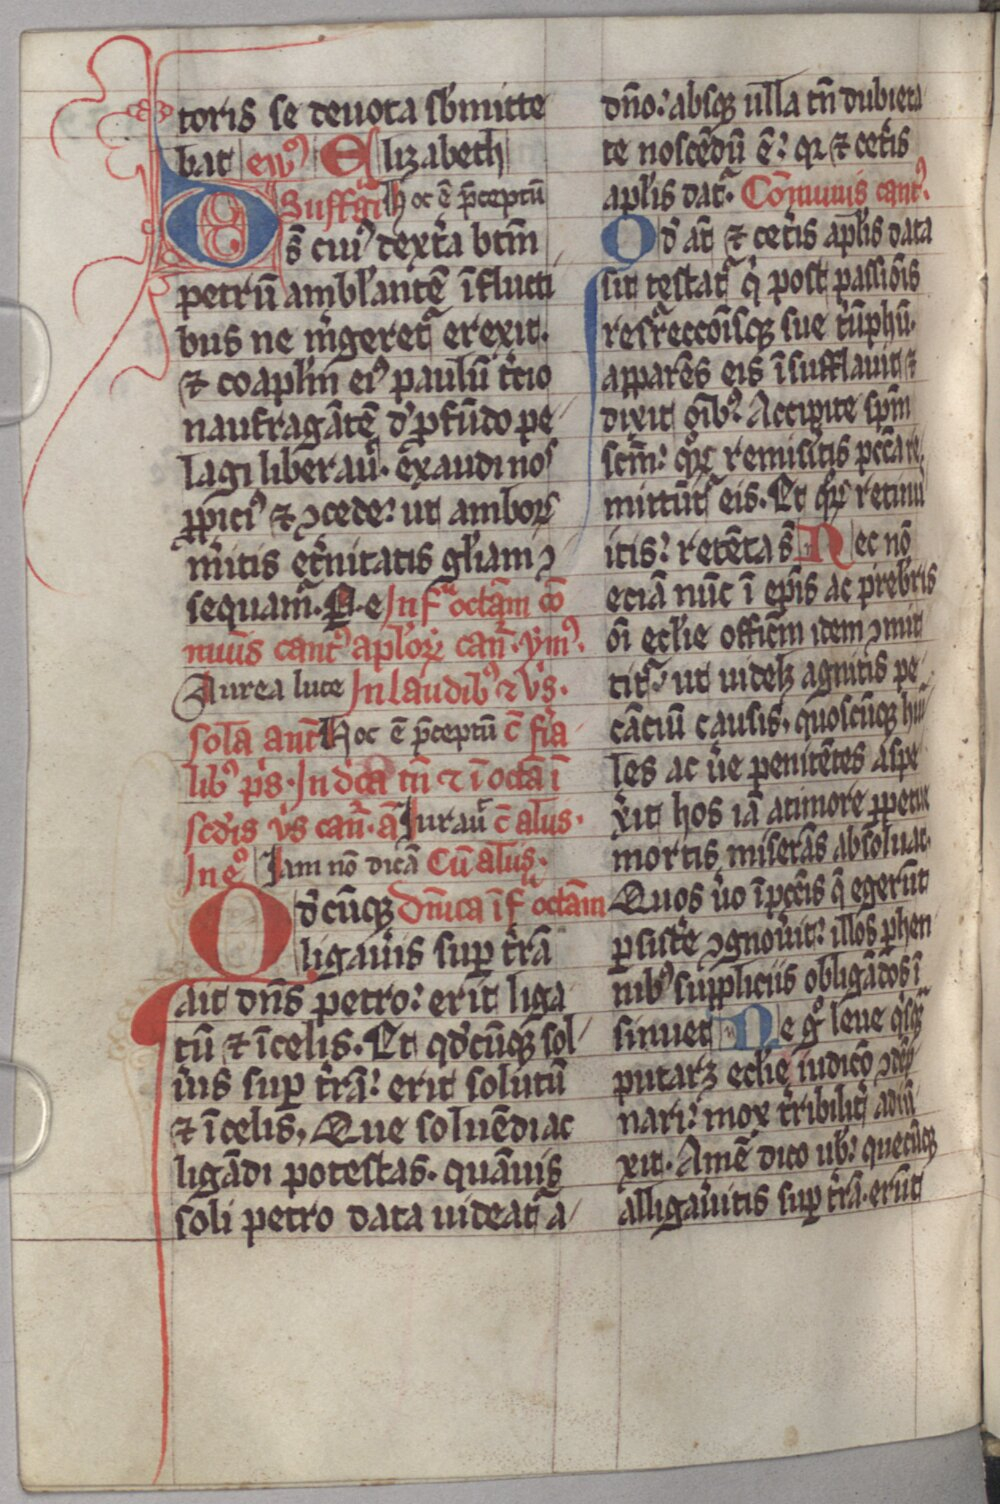 toris se deuota sb̓mitte
bat eu͛o⁹ Elizabeth
Suffr̃a Hoc ē p̄ceptū
Ds̄ cui⁹ dext̓a btm̄
petrū ambl̓antē ī flucti
bus ne m̓geret̃ erexit.
⁊ coapl̓m̄ ei⁹ paulū t̓cio
naufragātē d̓ p̱fūdo pe
lagi lib̓erau̓. exaudi nos
ꝓpici⁹ ⁊ ꝯcede: ut amboꝝ
m̓itis et̓nitatis gl̓iam ꝯ
sequam̃. P. e In f̃ octām cō
munis cant⁹ apl̓oꝝ can̄. ym⁹.
Aurea luce In laudib⁹ ⁊ vs̓.
sola ant̄ Hoc ē p̄ceptū c̄ fīa
lib⁹ p̓s. In dc̄a tn̄ ⁊ ī octā ī
scd̓is vs̓ can̄. ā Iurau̓ c̄ alijs.
In eͦ Iam nō dicā Cū alijs.
Qd̓cūqꝫ Dn̄ica ī f̃ octām
ligau̓is suꝑ t̓rā
ait dn̄s petro: erit liga
tū ⁊ ī celis. Et qd̓cūqꝫ sol
u̓is suꝑ t̓rā: erit solutū
⁊ ī celis. Que soluēdi ac
ligādi potestas. quāuis
soli petro data uideat̃ a
dn̄o: absqꝫ ulla tn̄ dubieta
te noscēdū ē: qꝛ ⁊ cet̓is
apl̓is dat̃. Cōmunis cant⁹.
Qd̓ āt ⁊ cet̓is apl̓is data
sit testat̃ q̓ post passiōis
resr̓reccōīsqꝫ sue t̓ūphū.
apparēs eis īsufflauit ⁊
dixit oīb⁹. Accipite sp̄m
scm̄: qͦꝝ remisītis pcc̄a re
mittūt̃ eis. Et qͦꝝ retinu
itis: retēta s̄ Nec nō
eciā nūc ī ep̄is ac pr̄ebr̄is
oī eccl̓ie officm̄ idem ꝯmit
tit̃: ut uidelꝫ agnitis pe
cāciū causis. quoscūqꝫ hūi
les ac u̓e penitētes aspe
x̓it hos iā a timore ꝑpetue
mortis miserās absoluat.
Quos u̓o ī pcc̄is q̄ egerūt
ꝑsist̓e ꝯgnou̓it: illos ꝑhen
nib⁹ suppliciis obligādos ī
sinuet Ne gͦ leue q̓sqꝫ
putarꝫ eccl̓ie iudicō ꝯdēp
nari: mox t̓ribilit̓ adiū
xit. Amē dico uob̓: quecūqꝫ
alligau̓itis suꝑ t̓rā. erūt